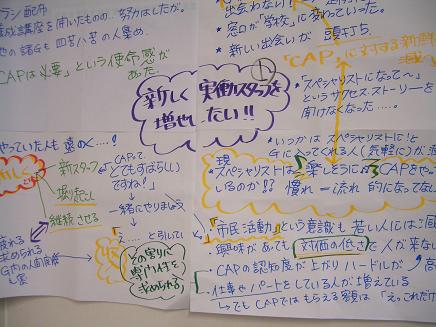 ラシ配布
養成講座を開いたものの… 努力はしたが。
他の諸Gも四苦八苦の人集め
CAPは必要」という使命感が
あった。
出会わない!
★窓口が「学校」に変わっていった。
★新しい出会いが 頭打ち
「CAP」に対する新鮮
①
新しく 実働スタッフを
増やしたい!!
★「スペシャリストになって〜」
というサクセス・ストーリーを
聞けなくなった……。
★いつかは スペシャリストに!と
Gに入ってくれる人(気軽に)が
現
★スペシャリストは 楽しそうに CAPをやっ
しるのか!? 慣れ−流れ 的になってな
やっていた人も 遠のく…!
新スタッフ
掘り起こし
継続させる
「CAPって、
とてもすばらしい
ですね!」
一緒にやりましょう
え…… と引いて
その割りに
専門性を
求められる
疲れる
求められる
「市民活動」という意識も 若い人には
興味があっても 対価の低さに 人が来な
CAPの認知度が上がりハードルが 高
仕事やパートをしている人が増えている
しってもCAPではもらえる額は 「えっ、これだけ